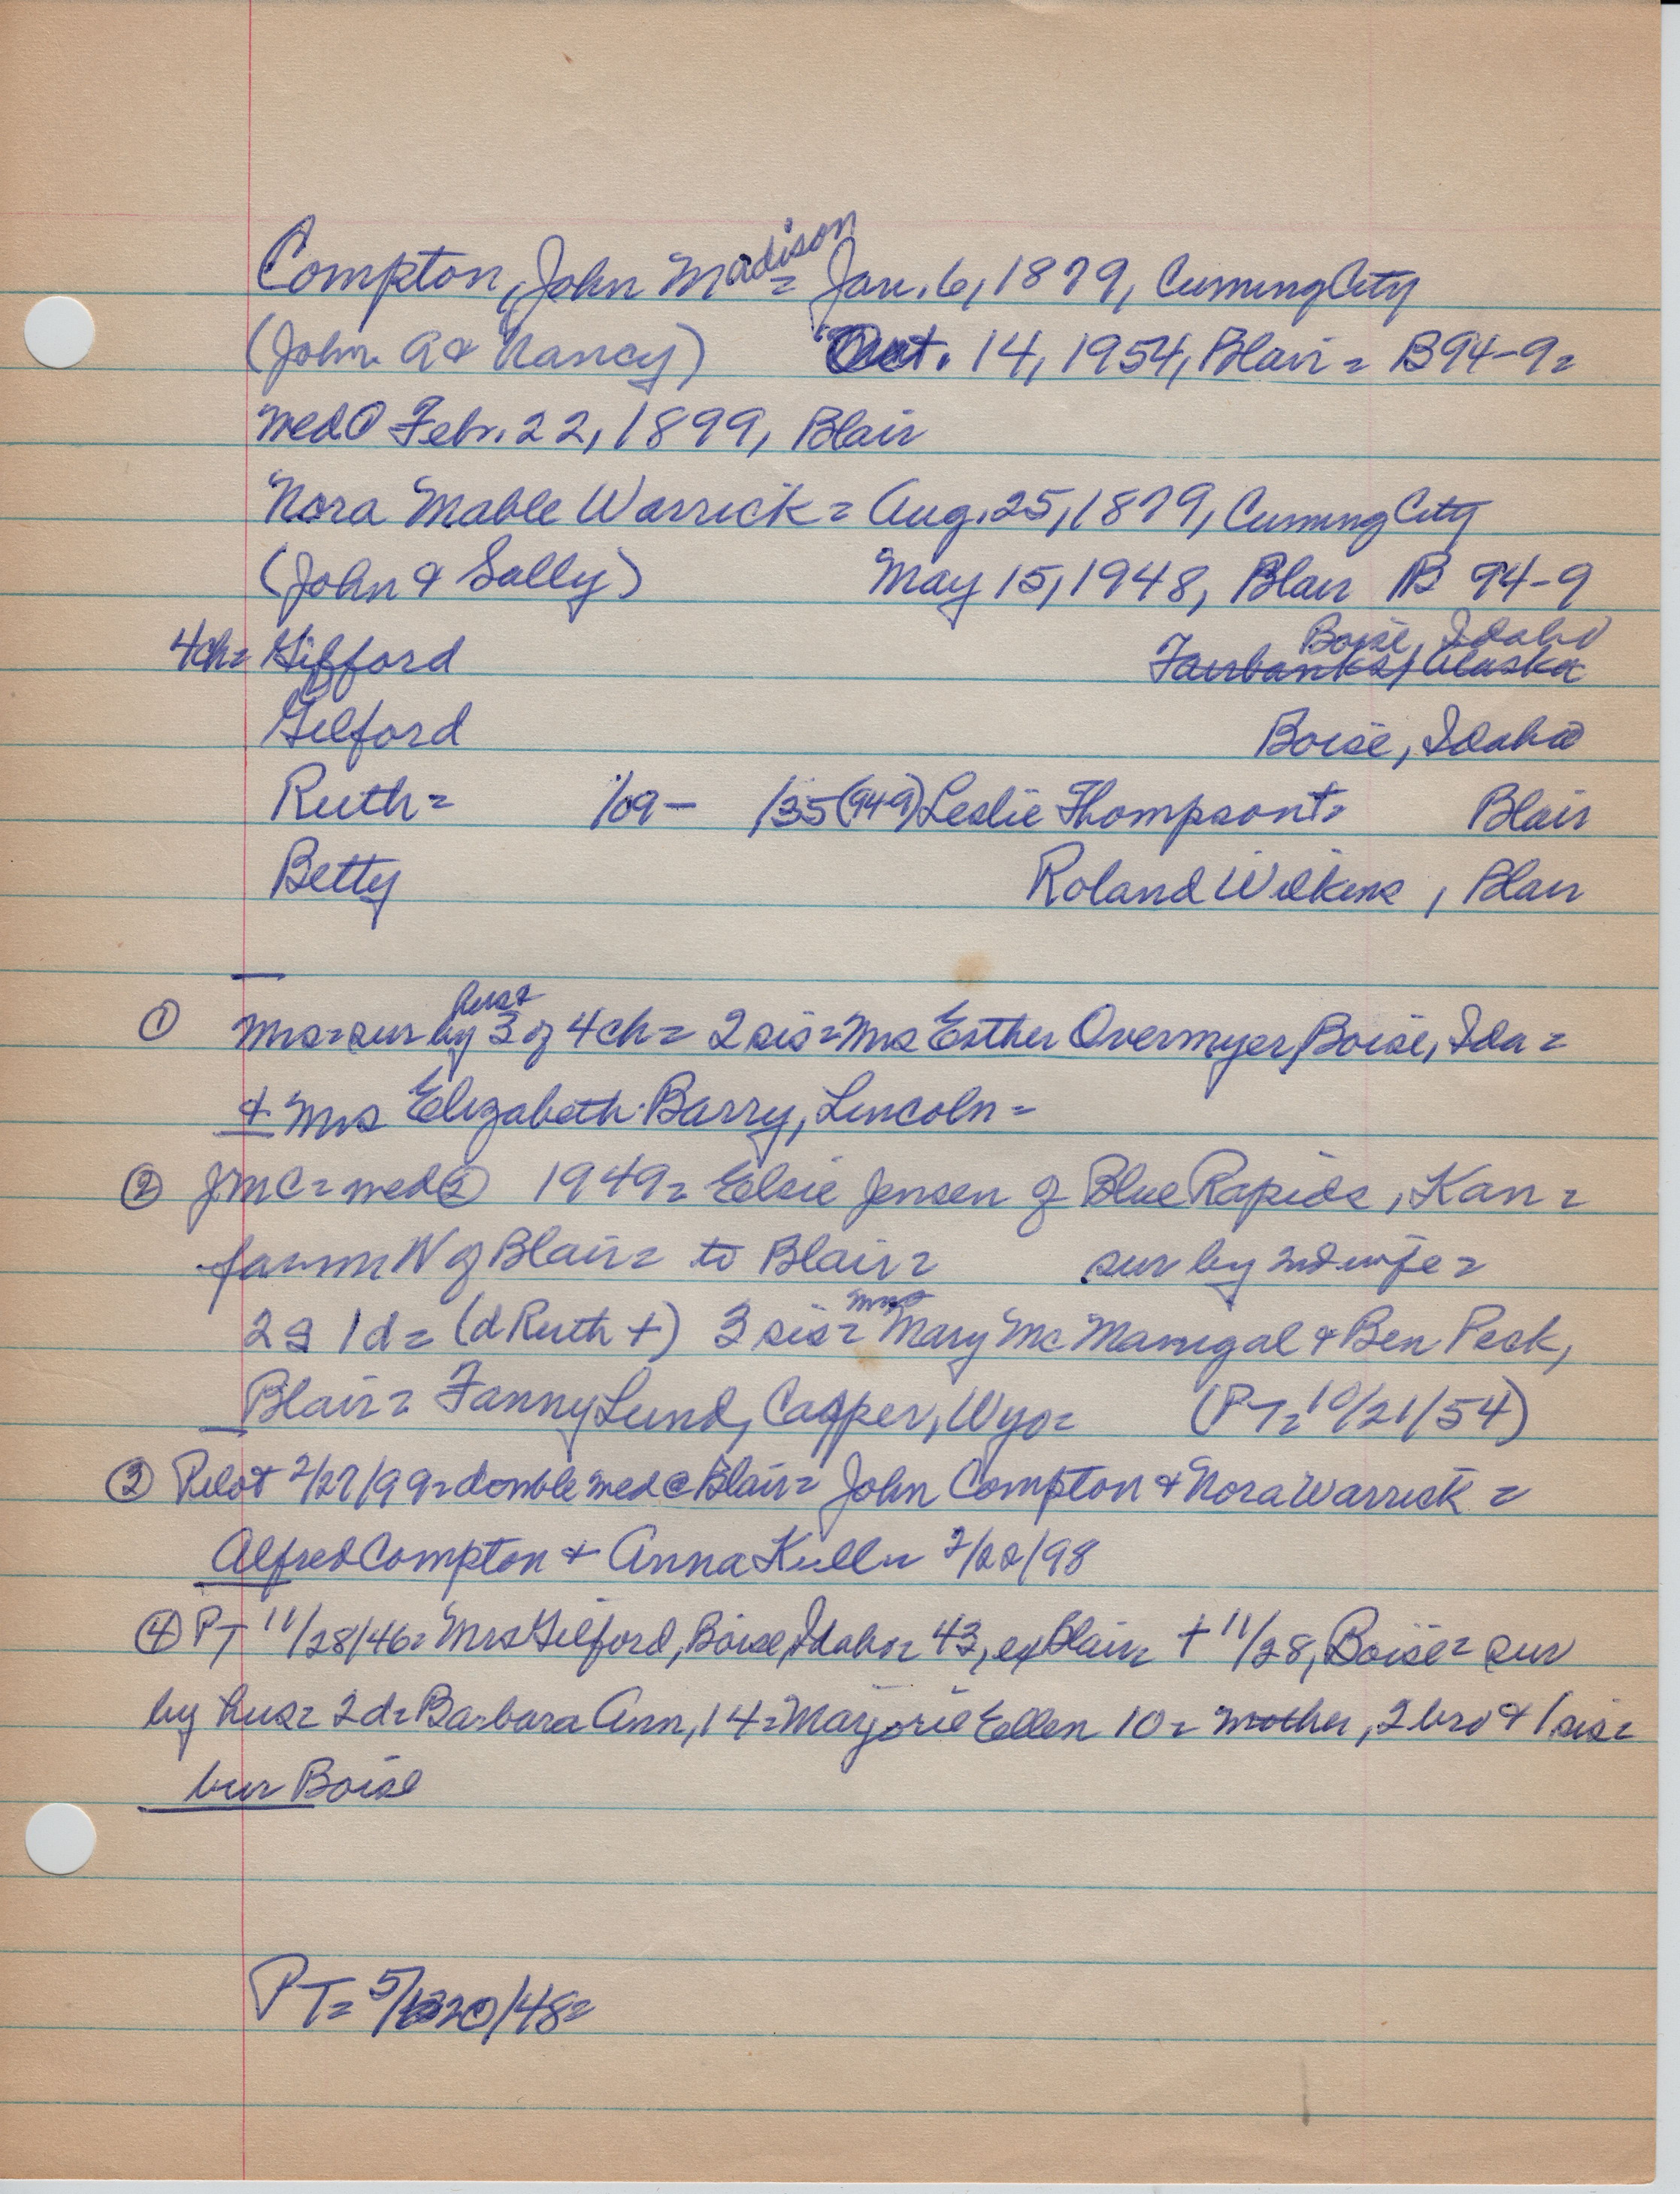 Compton, John Madison = Jan. 6, 1879, Cuming City
(John A & Nancy) Oct. 14, 1954, Blair = B94-9=
med① Feb. 22, 1899, Blair
Nora Mable Warrick = Aug. 25, 1879, Cuming City
(John & Sally) May 15, 1948, Blair B 94-9
Boise, Idaho
4ch= Gifford Fairbanks, Alaska
Gilford Boise, Idaho
Ruth = 1/09 - /35 (949) Leslie Thompson += Blair
Betty Roland Wilkins, Blair
hus &
① Mrs = sur by 3 of 4 ch = 2 sis = Mrs Esther Overmyer, Boise, Ida =
& Mrs Elizabeth Barry, Lincoln =
② JMC = med② 1949 = Elsie Jensen of Blue Rapids, Kan =
farm W of Blair = to Blair = sur by 2nd wife =
Mrs
2s 1d = (d Ruth +) 3 sis = Mary McManigal & Ben Peck,
Blair = Fanny Lund, Casper, Wyo = (PT= 10/21/54)
③ Pilot 2/27/99 = double med @ Blair = John Compton & Nora Warrick =
Alfred Compton & Anna 2/22/98
④ PT 11/28/46 = Mrs Gilford, Boise, Idaho = 43, ex Blair = + 11/28, Boise = sur
by hus = 2d = Barbara Ann, 14 = Marjorie Ellen 10 = mother, 2 bro & 1 sis =
bur Boise
PT= 5/20/48=